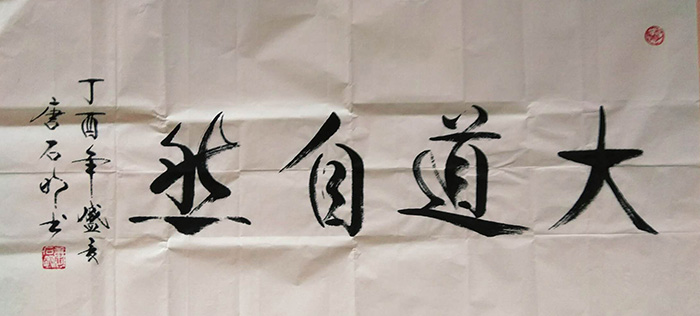 大道自然
丁酉年盛夏
唐石明书